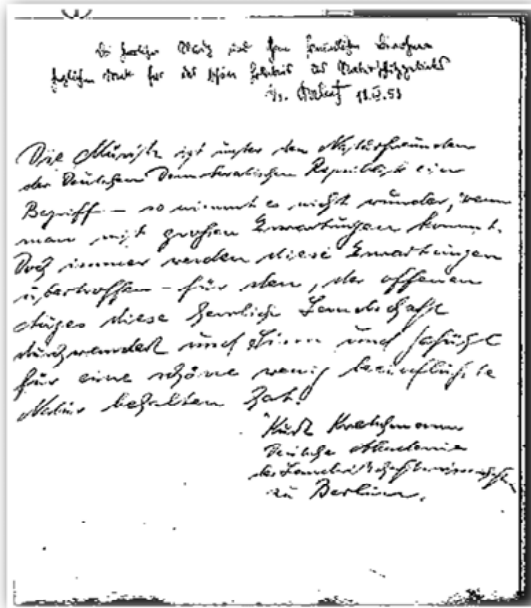 für das schöne Erlebnis des Naturschutzgebietes
11.IV.53
Die Müritz ist unter den Naturfreunden
der Deutschen Demokratischen Republik ein
Begriff – so nimmt es nicht wunder, wenn
man mit großen Erwartungen kommt.
Doch immer werden diese Erwartungen
übertroffen – für den, der offenen
Auges diese herrliche Landschaft
durchwandert und Sinn und Gefühl
für eine schöne wenig beeinflußte
Natur behalten hat!
Kurt Kretschmann
Deutsche Akademie
der Landwirtschaftswissenschaften
zu Berlin.